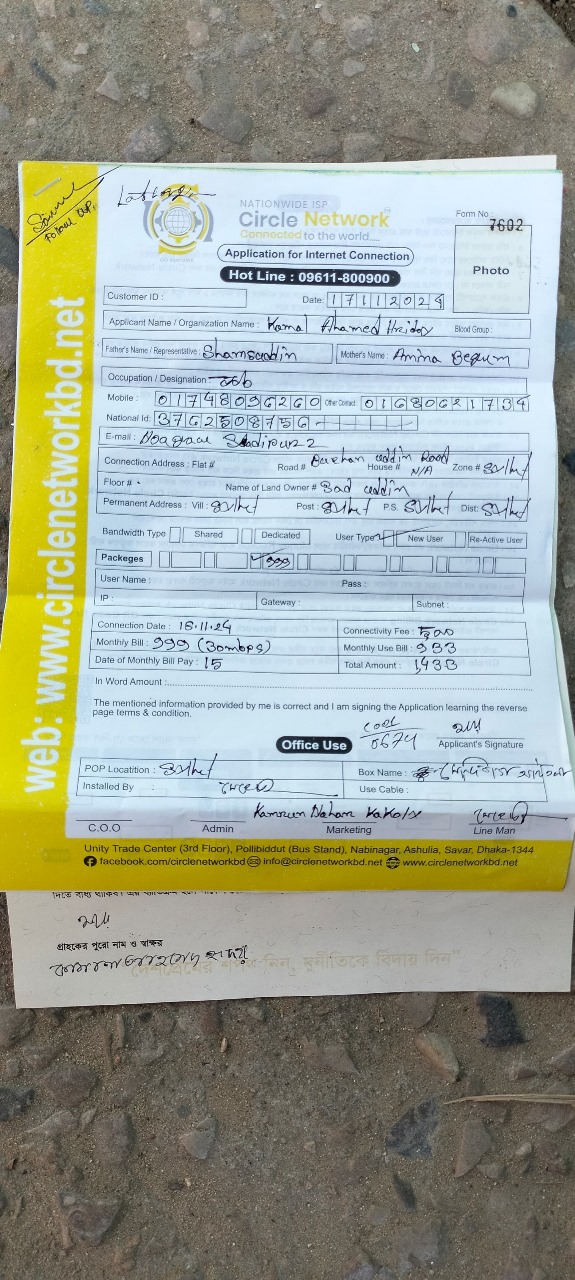 Follow up.
NATIONWIDE ISP
Circle Network
Connected to the world.....
Form No
7602
Photo
Application for Internet Connection
Hot Line : 09611-800900
Customer ID :
Date: 17112024
Applicant Name / Organization Name : Kamal Ahamed Hridoy Blood Group :
Father's Name / Representative : Shamsuddin Mother's Name : Amina Begum
Occupation / Designation : Job
Mobile : 01748096260 Other Contact 01680621734
National Id: 3762508756
E-mail :
Connection Address : Flat # Road # Burhan uddin Road House # N/A Zone # Sylhet
Floor # Name of Land Owner # Sad uddin
Permanent Address : Vill : Sylhet Post : Sylhet P.S. Sylhet Dist: Sylhet
Bandwidth Type Shared Dedicated User Type New User Re-Active User
Packeges 999
User Name : Pass :
IP : Gateway: Subnet :
Connection Date : 16.11.24 Connectivity Fee : 500
Monthly Bill : 999 (30mbps) Monthly Use Bill : 933
Date of Monthly Bill Pay : 15 Total Amount : 1,433
In Word Amount :
The mentioned information provided by me is correct and I am signing the Application learning the reverse
page terms & condition.
Office Use
code
0674
Applicant's Signature
POP Locatition : Sylhet Box Name :
Installed By : Use Cable :
Kamrun Nahar Kakoly
C.O.O Admin Marketing Line Man
Unity Trade Center (3rd Floor), Pollibiddut (Bus Stand), Nabinagar, Ashulia, Savar, Dhaka-1344
facebook.com/circlenetworkbd info@circlenetworkbd.net www.circlenetworkbd.net
web: www.circlenetworkbd.net
গ্রাহকের পুরো নাম ও স্বাক্ষর